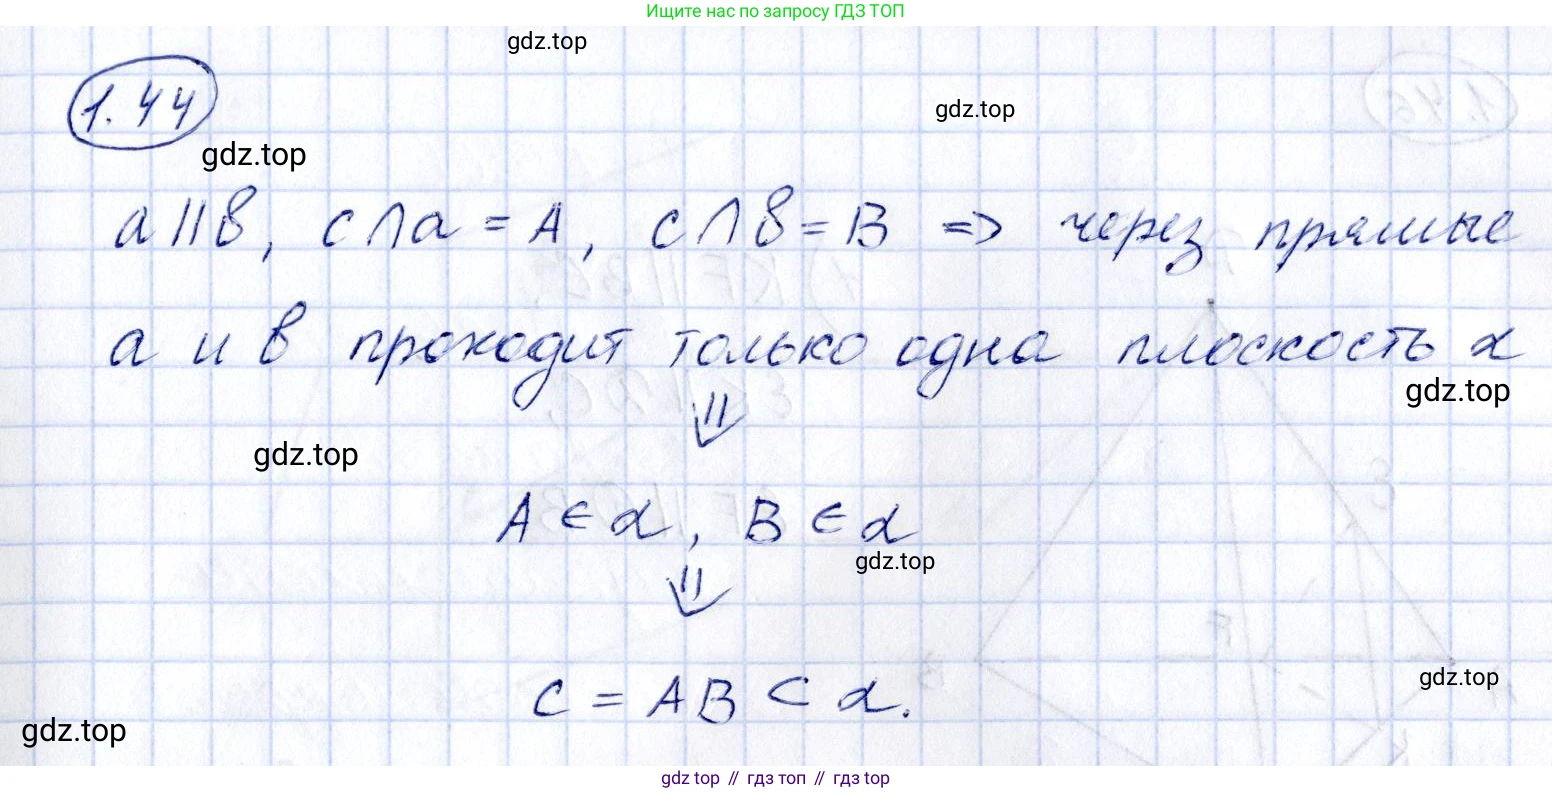 Ищите нас по запросу ГДЗ ТОП
gdz.top
1.44
gdz.top
gdz.top
a || b, c ∩ a = A, c ∩ b = B => через прямые
a и b проходит только одна плоскость α
gdz.top
⇓
gdz.top
A ∈ α, B ∈ α
gdz.top
⇓
c = AB ⊂ α.
gdz.top
gdz.top
gdz top // гдз топ // gdz top